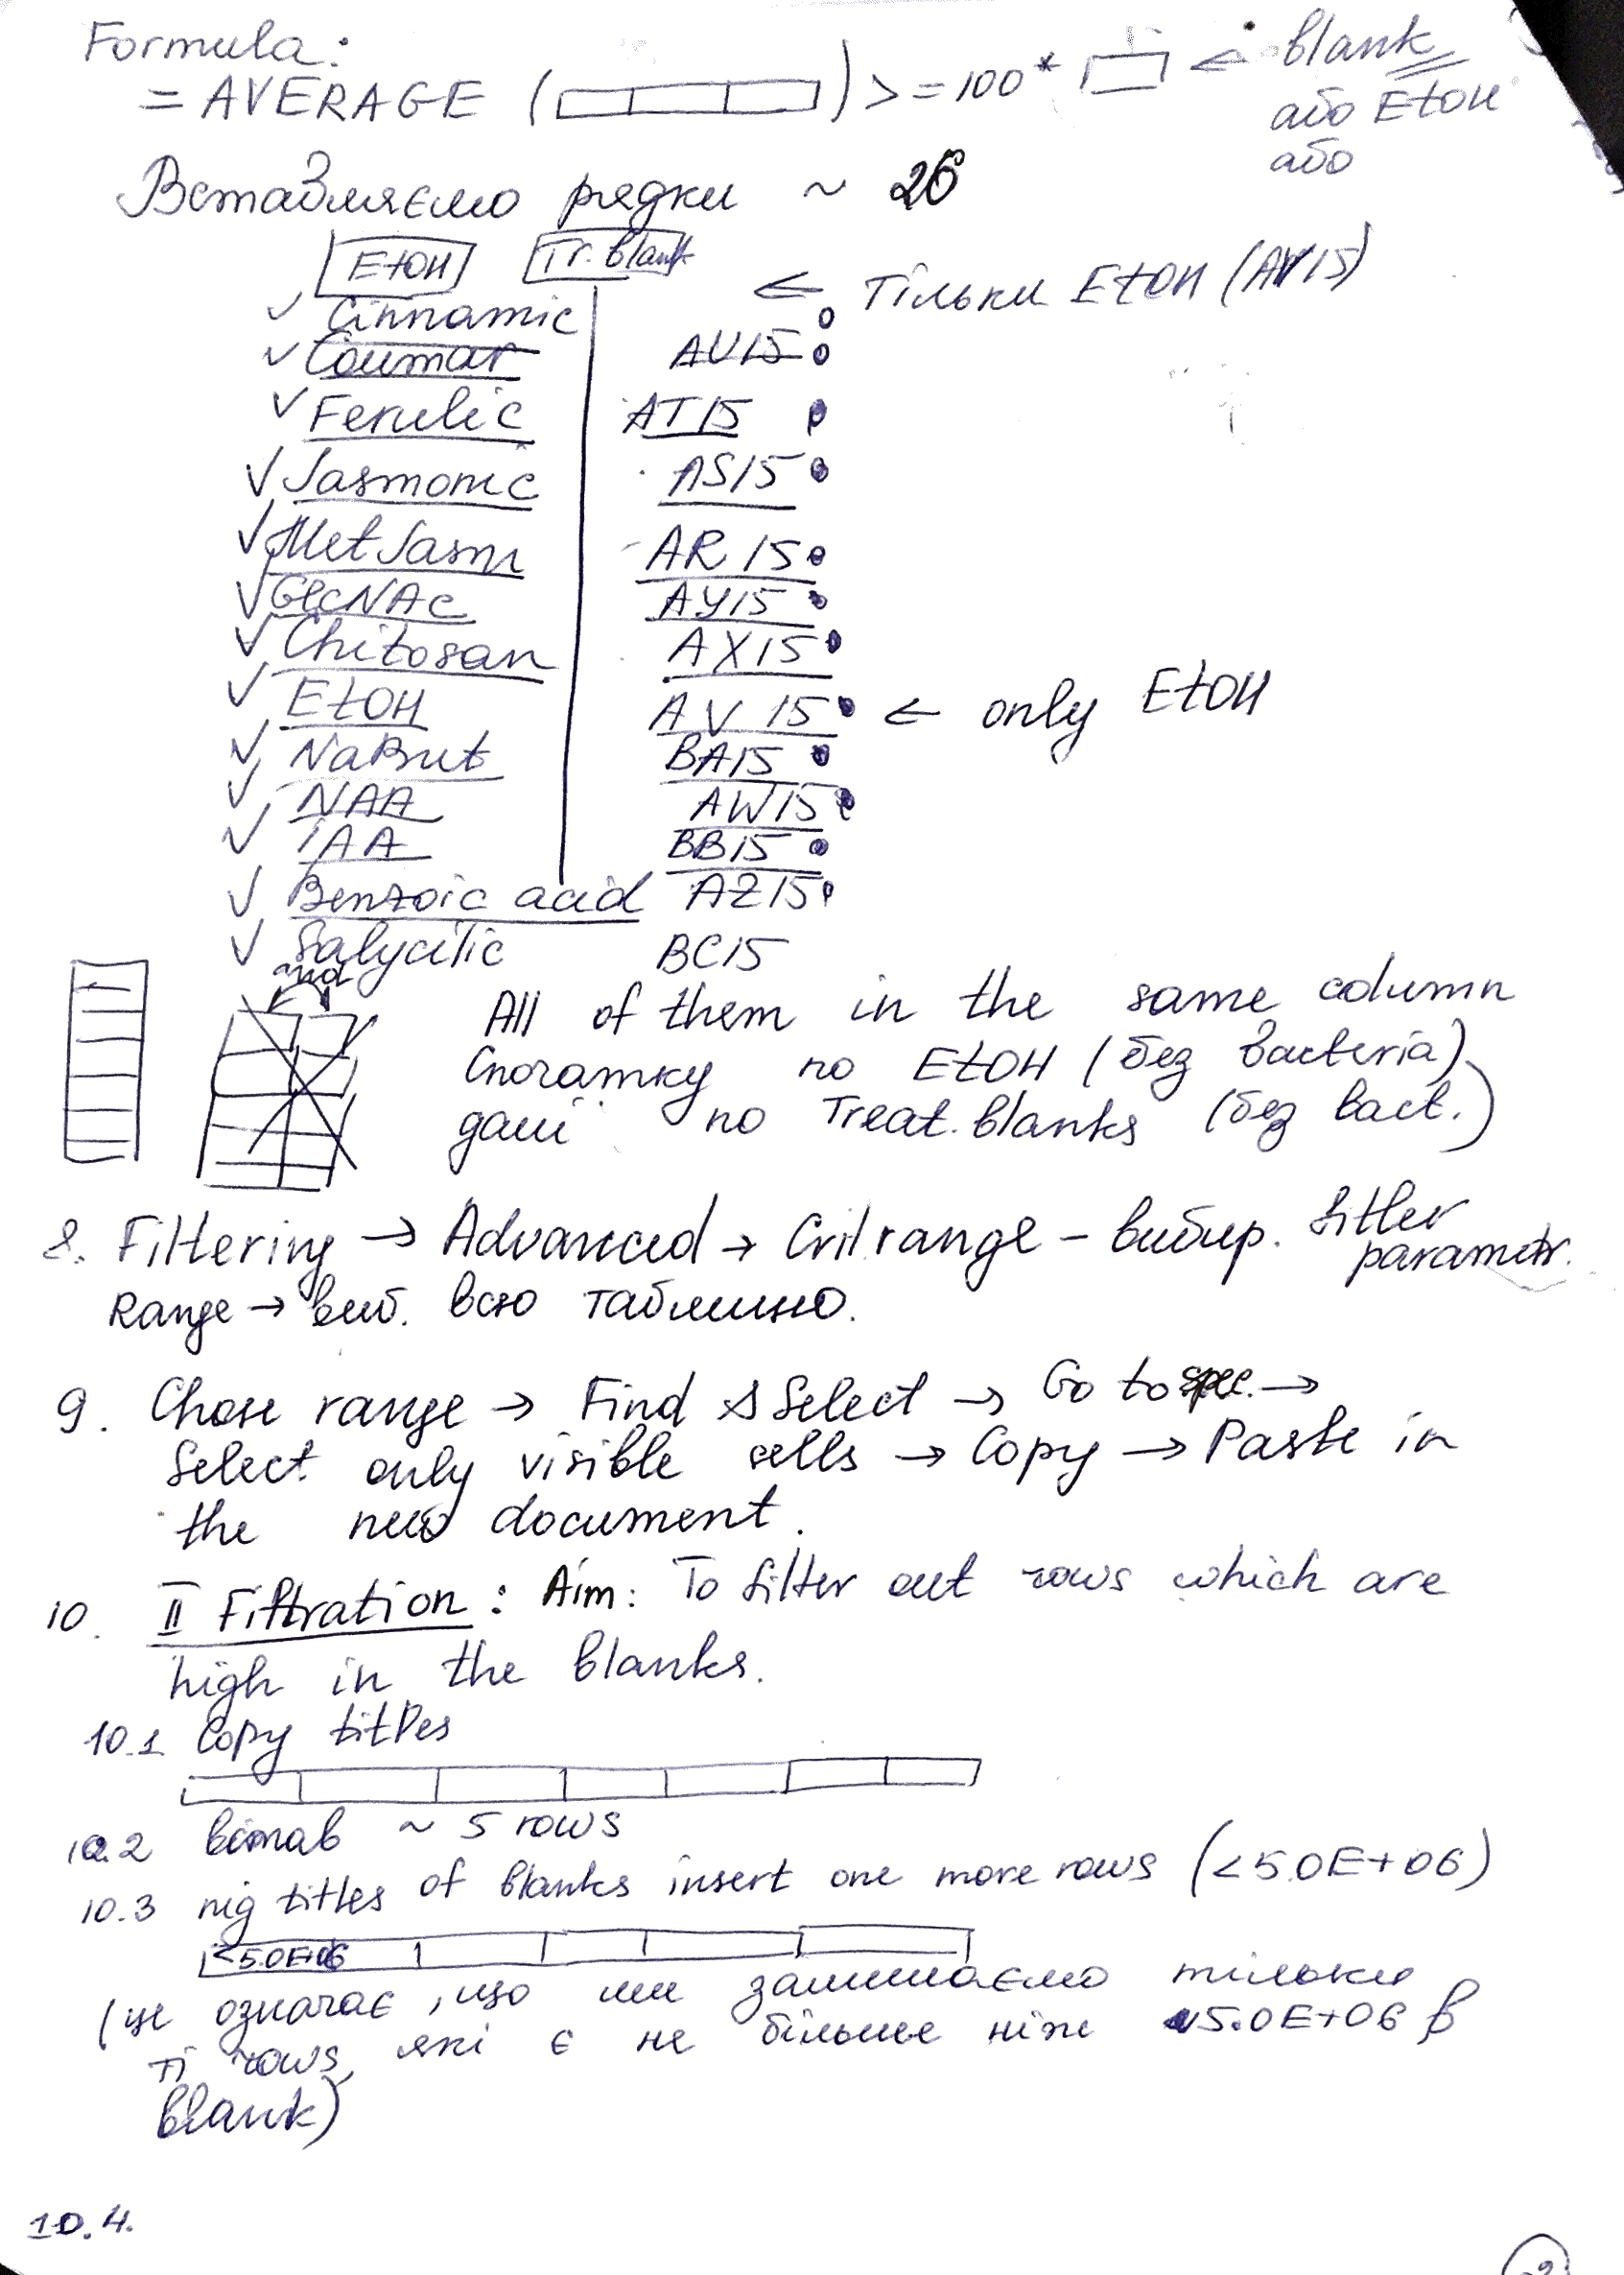 Formula:
= AVERAGE ( ) >= 100* ← blank
або EtOH
або
Вставляємо рядки ~ 26
EtOH Tr. blank
← Тільки EtOH (AV15)
✓ Cinnamic
✓ Coumar AU15
✓ Ferulic AT15
✓ Jasmonic AS15
✓ MetJasm AR15
✓ GlcNAc AY15
✓ Chitosan AX15
✓ EtOH AV15 ← only EtOH
✓ NaBut BA15
✓ NAA AW15
✓ IAA BB15
✓ Benzoic acid AZ15
✓ Salycilic BC15
and
All of them in the same column
Спочатку по EtOH (без bacteria)
далі по Treat. blanks (без bact.)
8. Filtering → Advanced → Crit range – вибир. filter parametr.
Range → виб. всю таблицю.
9. Chose range → Find & Select → Go to spec. →
Select only visible cells → Copy → Paste in
the new document.
10. II Filtration: Aim: To filter out rows which are
high in the blanks.
10.1 Copy titles
10.2 встав ~ 5 rows
10.3 під titles of blanks insert one more rows (<5.0E+06)
<5.0E+06
(це означає, що ми залишаємо тільки
ті rows, які є не більше ніж 5.0E+06 в
blank)
10.4.